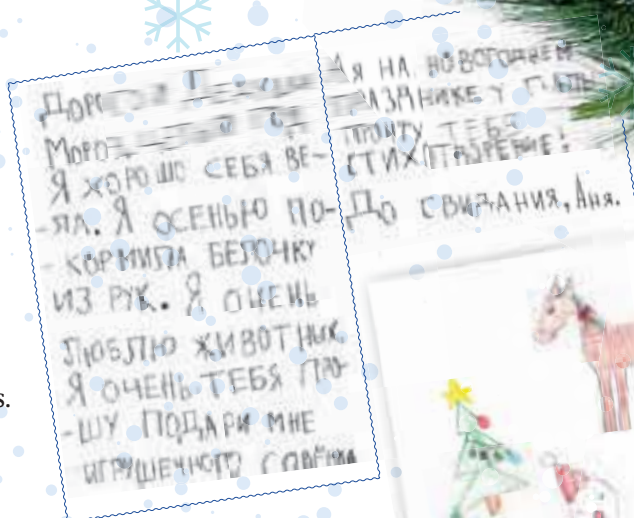 Дорогой
Моро
Я хорошо себя ве-
-ла. Я осенью по-
- кормила белочку
из рук. Я очень
люблю животных.
Я очень тебя про-
-шу подари мне
игрушечного
А я на новогоднем
празднике у
прочту тебе
стихотворение!
До свидания, Аня.
s.